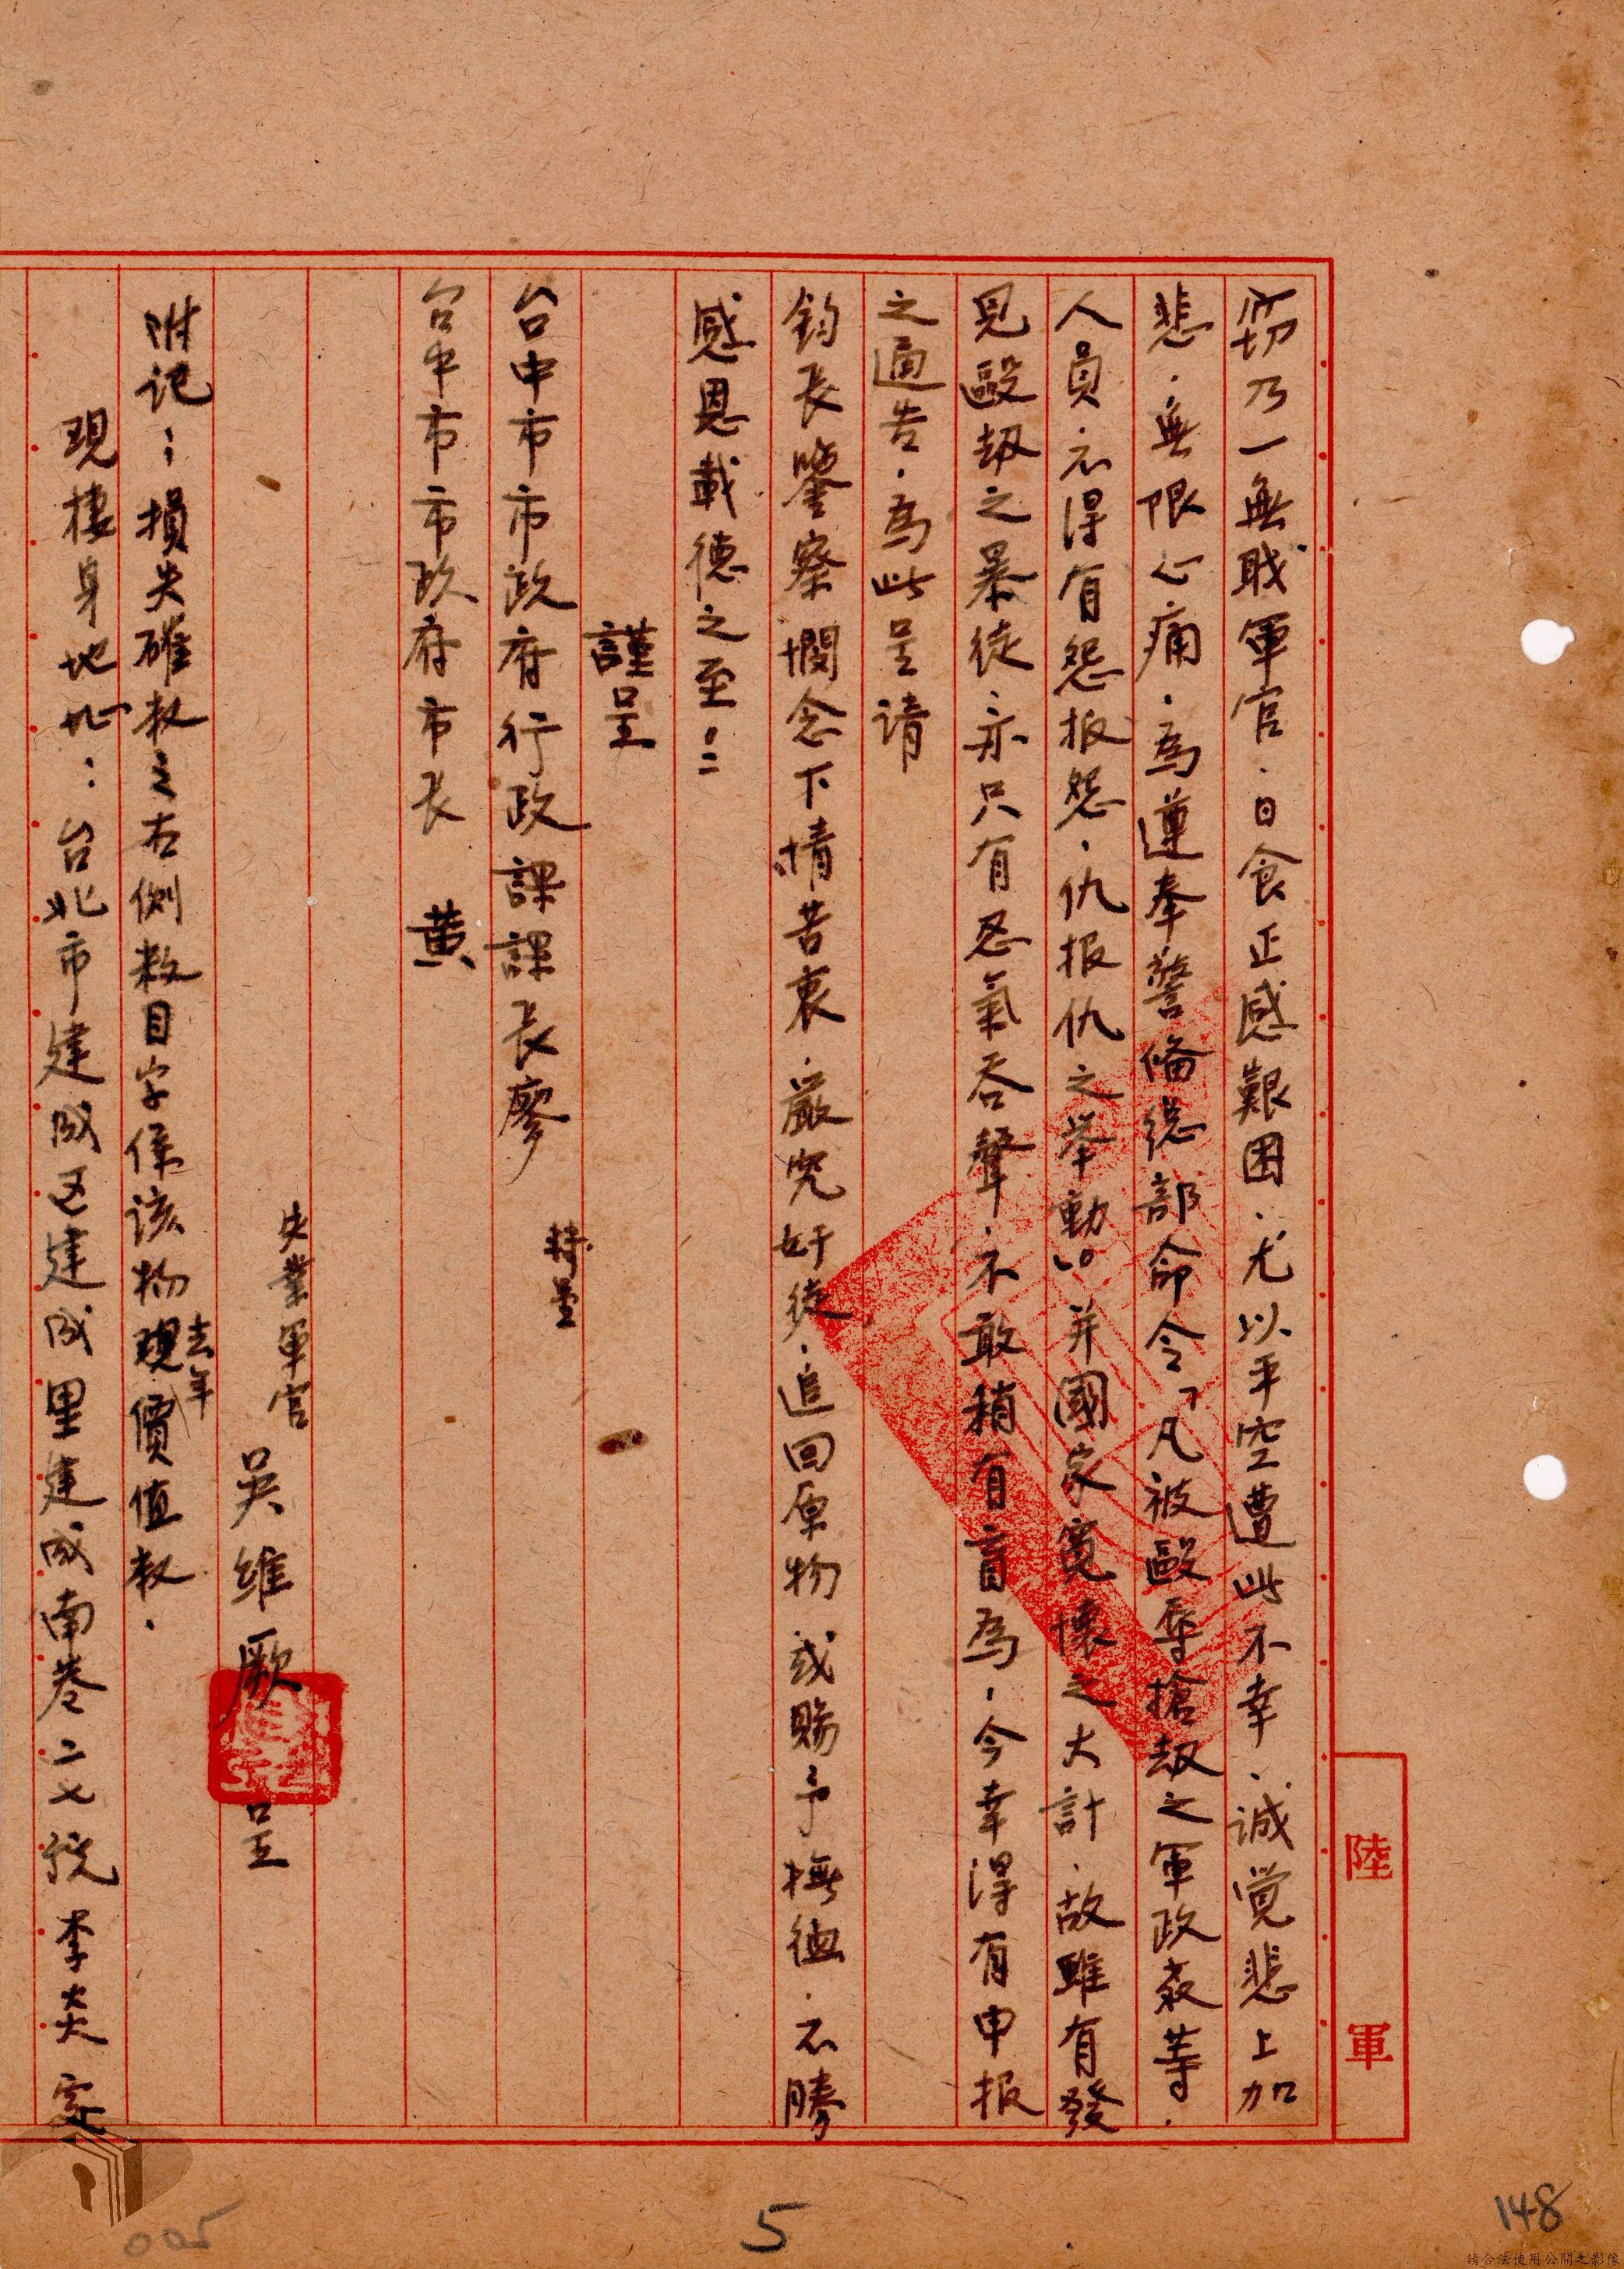 窃乃一無職軍官．日食正感艱困．尤以平空遭此不幸．誠覚悲上加
悲．無限心痛．為遵奉警俻総部命令「凡被毆辱搶刼之軍政教等．
人員．不得有怨报怨．仇报仇之举動」。并國家寛懐之大計．故雖有發
見毆刼之暴徒．亦只有忍氣吞聲．不敢稍有盲為．今幸得有申报
之通告．為此呈请
鈞長鑒察憫念下情苦衷．嚴究奸徒．追回原物或賜予撫衈．不勝
感恩載德之至！
謹呈
台中市市政府行政課課長廖
台中市市政府市長 黄
持呈
失業軍官 吳維厥 呈
附记：損失確数之右側数目字係该物現價值数．
去年
現棲身地址：台北市建成区建成里建成南巷二七號李炎宅
陸軍
5
005
148
請合法使用公開之影像